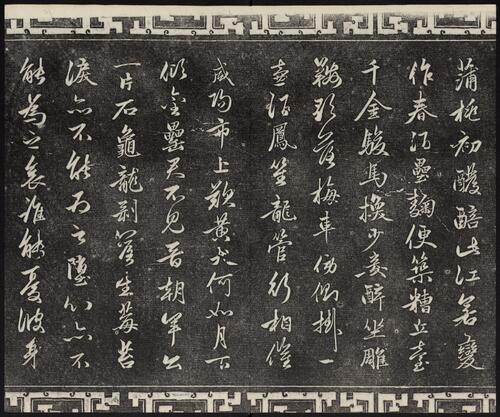 蒲桃初醱醅此江若變
作春酒壘麴便築糟丘臺
千金駿馬換少妾醉坐雕
鞍歌落梅車傍側掛一
壺酒鳳笙龍管行相催
咸陽市上歎黃犬何如月下
傾金罍君不見晉朝羊公
一片石龜龍剥落生莓苔
淚亦不能為之墮心亦不
能為之哀誰能憂彼身